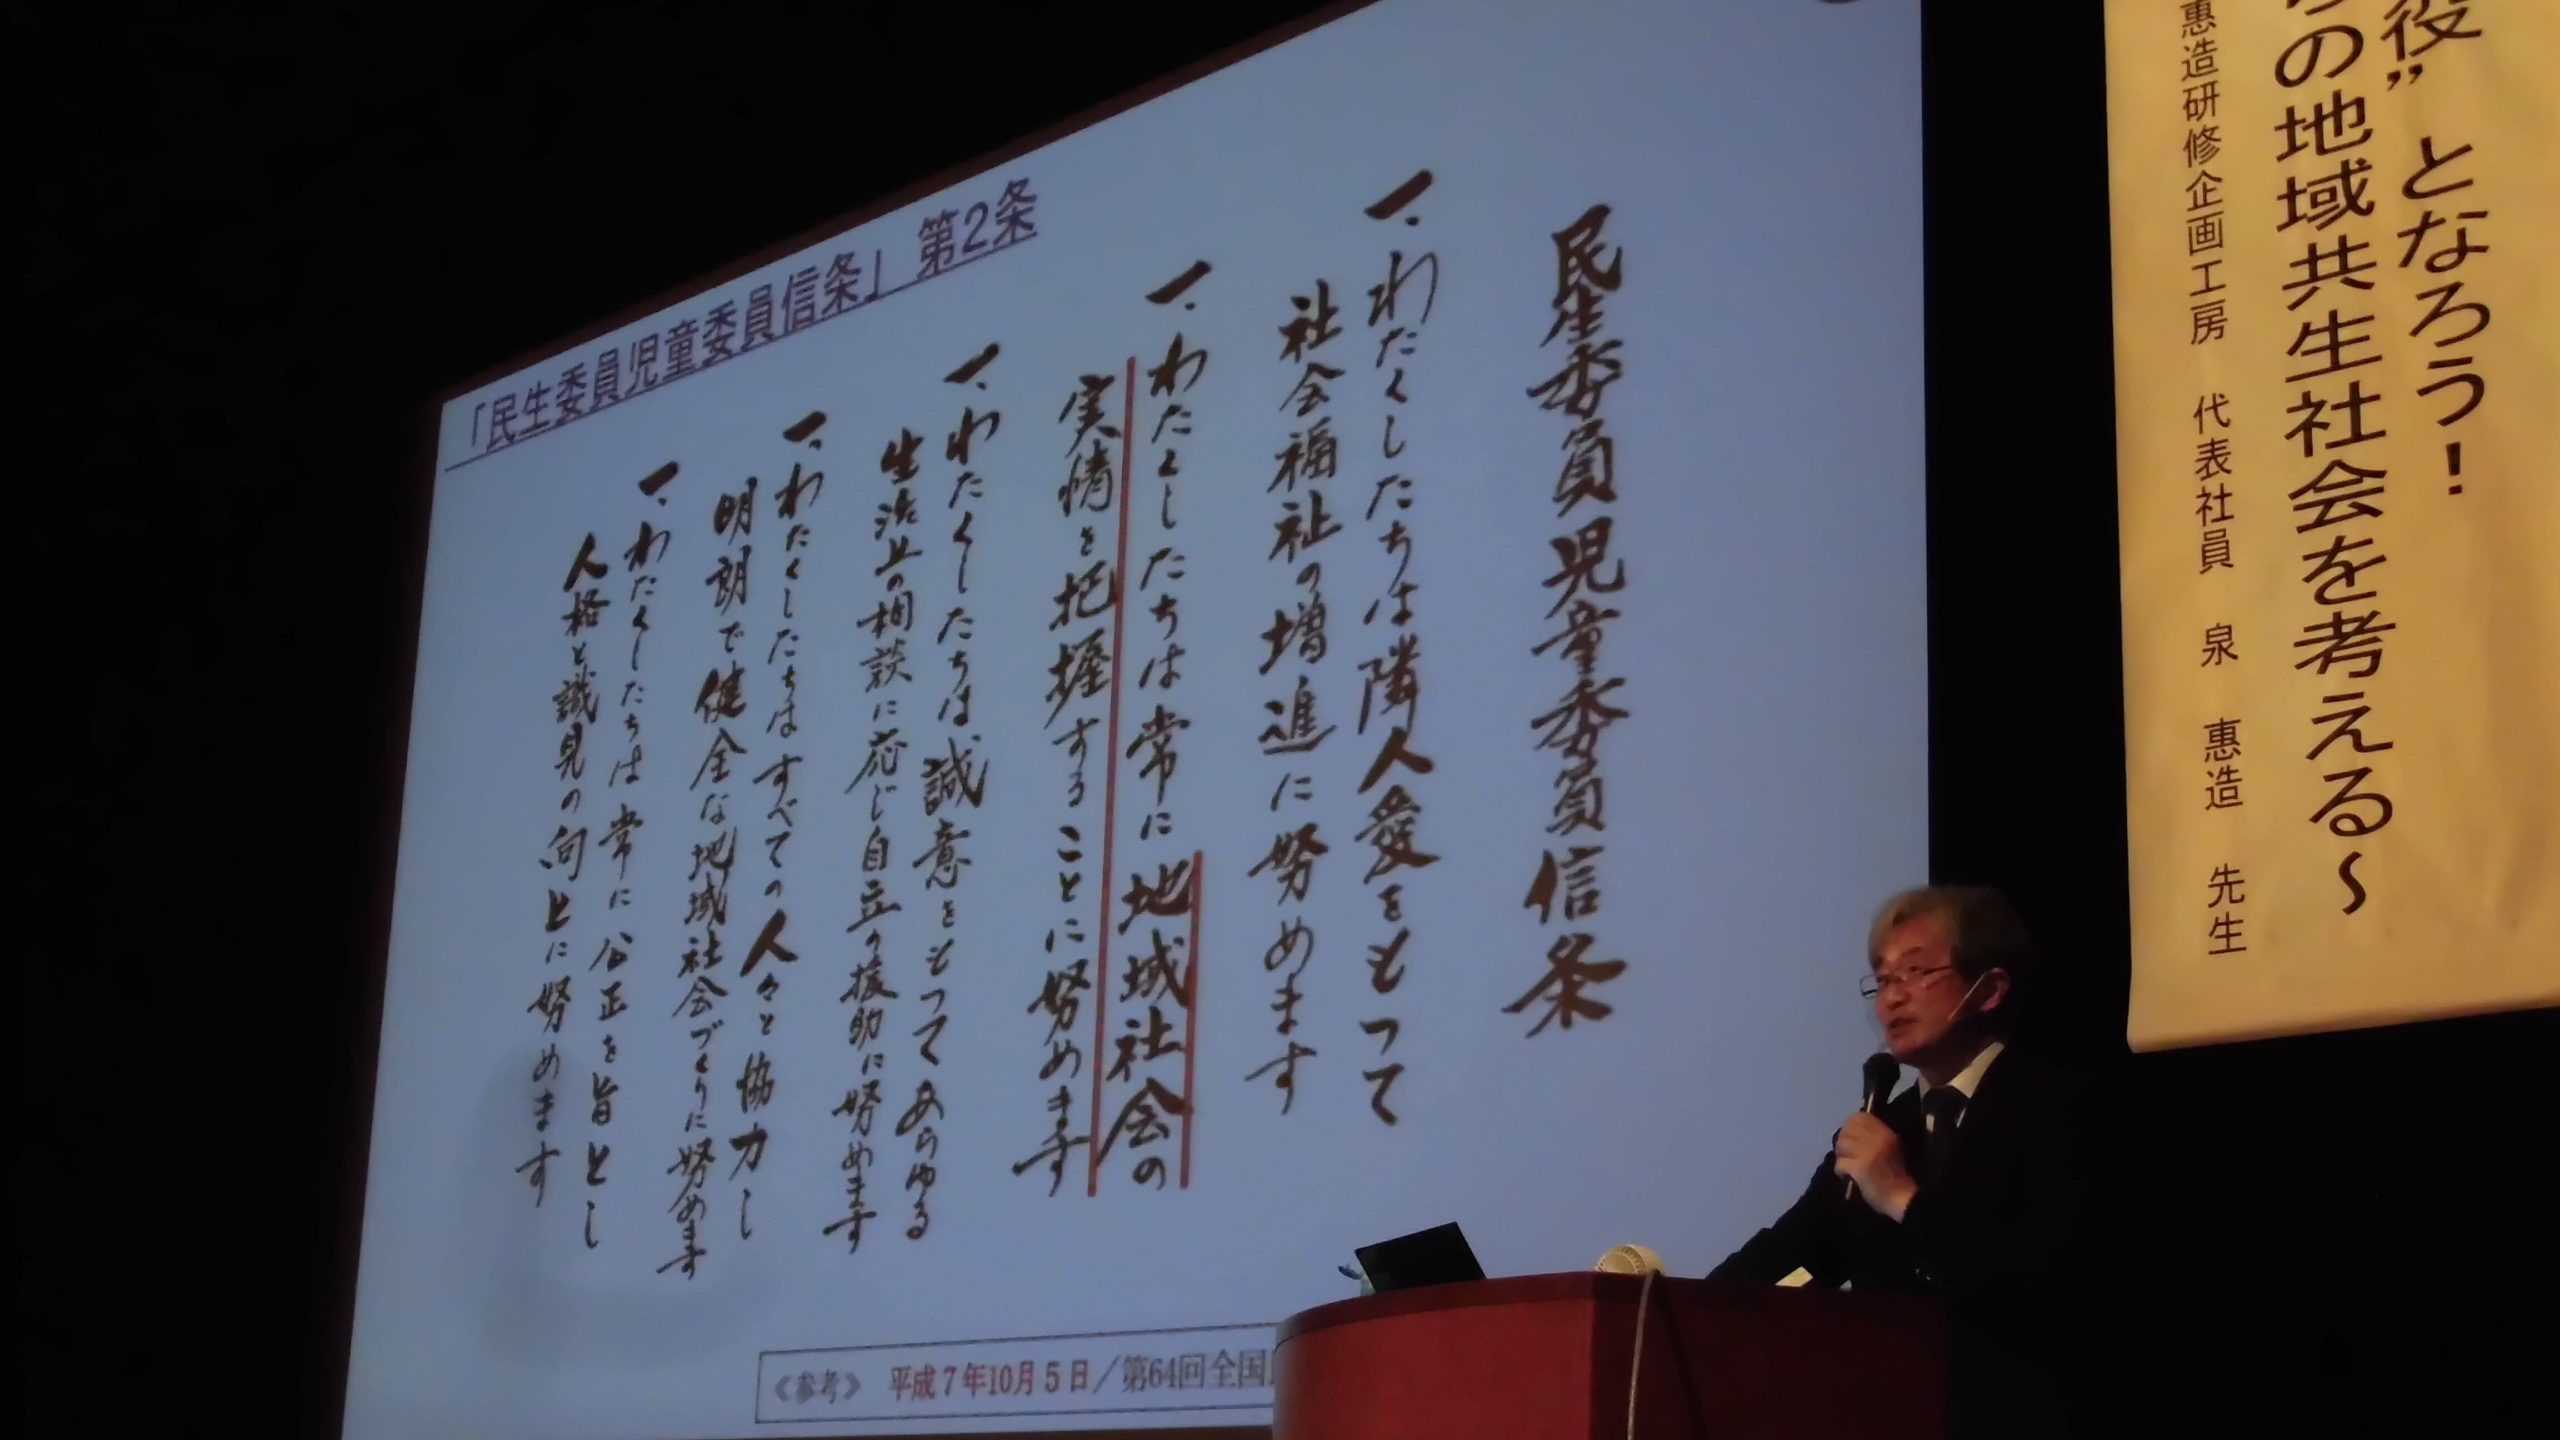 「民生委員児童委員信条」第2条
民生委員児童委員信条
一、わたくしたちは隣人愛をもって
社会福祉の増進に努めます
一、わたくしたちは常に地域社会の
実情を把握することに努めます
一、わたくしたちは誠意をもってあらゆる
生活上の相談に応じ自立の援助に努めます
一、わたくしたちはすべての人々と協力し
明朗で健全な地域社会づくりに努めます
一、わたくしたちは常に公正を旨とし
人格と識見の向上に努めます
《参考》 平成7年10月5日／第64回全国
役”となろう！
の地域共生社会を考える～
惠造研修企画工房 代表社員 泉 惠造 先生